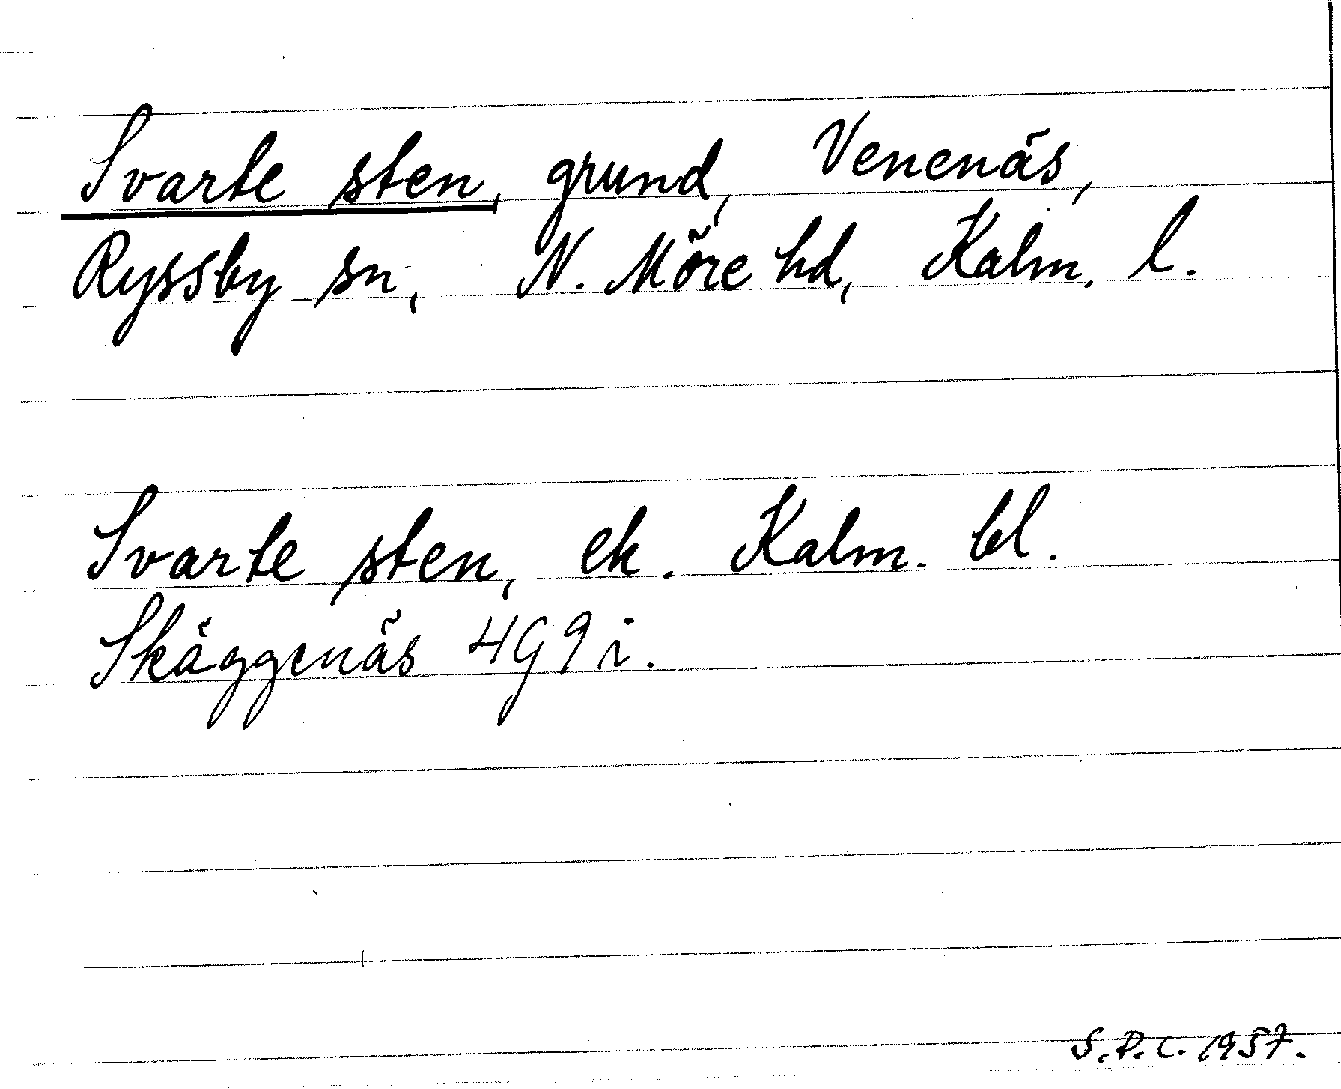 Svarte sten, grund, Venenäs,
Ryssby sn, N. Möre hd, Kalm. l.
Svarte sten, ek. Kalm. bl.
Skäggenäs 4G9i.
S.P.C. 1957.